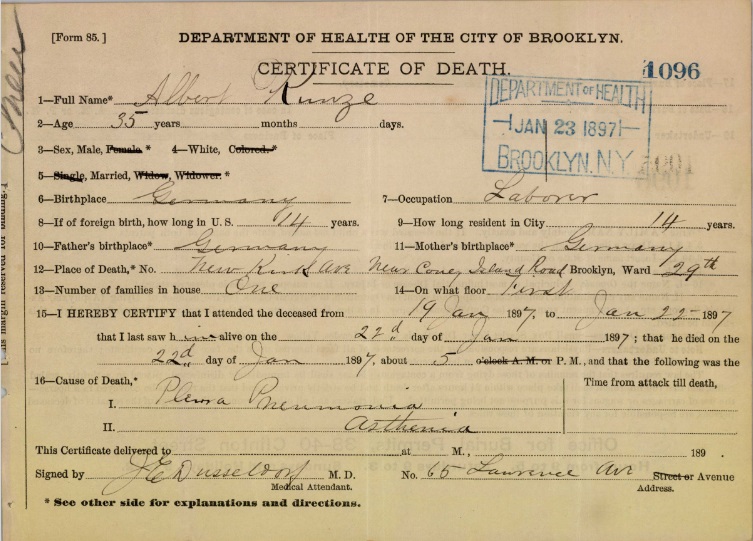 [Form 85.] DEPARTMENT OF HEALTH OF THE CITY OF BROOKLYN.
CERTIFICATE OF DEATH. 1096
DEPARTMENT OF HEALTH
JAN 23 1897
BROOKLYN. N.Y.
1—Full Name* Albert Kunze
2—Age 35 years months days.
3—Sex, Male, Female.* 4—White, Colored.*
5—Single, Married, Widow, Widower.*
6—Birthplace Germany 7—Occupation Laborer
8—If of foreign birth, how long in U. S. 14 years. 9—How long resident in City 14 years.
10—Father's birthplace* Germany 11—Mother's birthplace* Germany
12—Place of Death,* No. New Kirk Ave Near Coney Island Road Brooklyn, Ward 29th
13—Number of families in house One 14—On what floor First
15—I HEREBY CERTIFY that I attended the deceased from 19 Jan 1897, to Jan 22 1897
that I last saw him alive on the 22d day of Jan 1897; that he died on the
22d day of Jan 1897, about 5 o'clock A. M. or P. M., and that the following was the
16—Cause of Death,* Time from attack till death,
I. Pleura Pneumonia
II. Asthenia
This Certificate delivered to at M., 189 .
Signed by J E Dusseldorf M. D. No. 65 Lawrence Ave Street or Avenue
Medical Attendant. Address.
* See other side for explanations and directions.